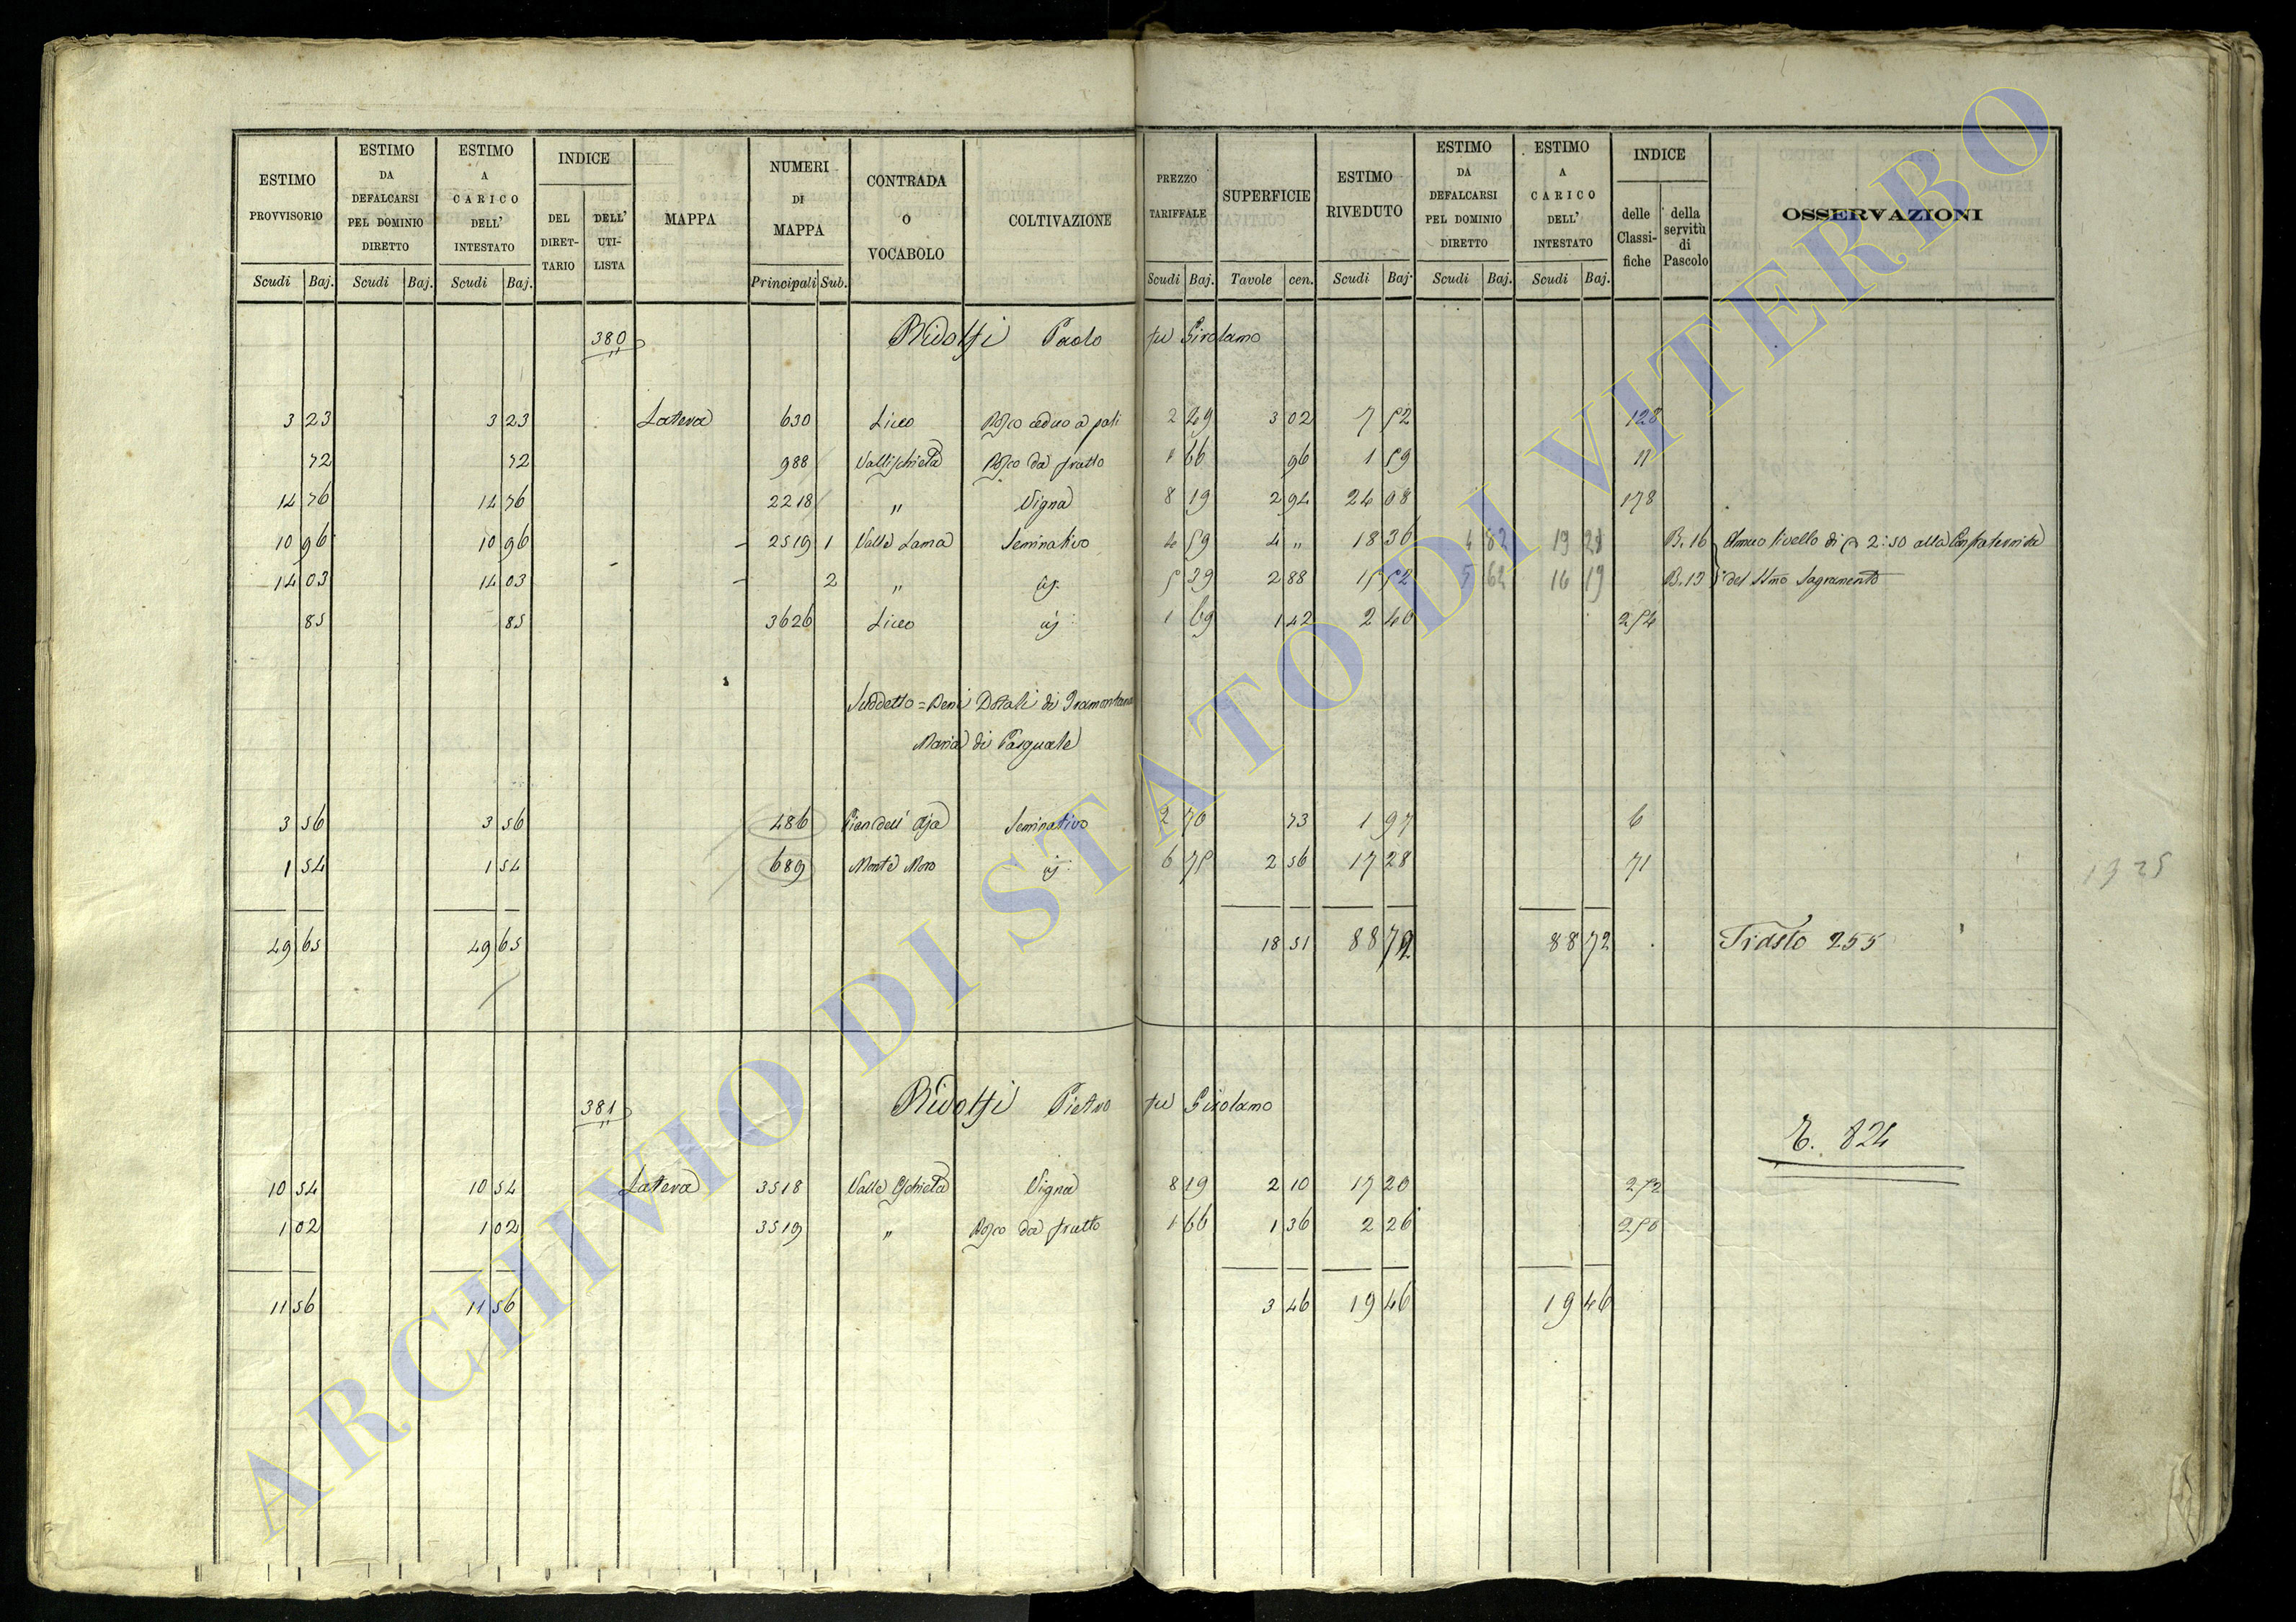 ESTIMO PROVVISORIO | ESTIMO DA DEFALCARSI PEL DOMINIO DIRETTO | ESTIMO A CARICO DELL' INTESTATO | INDICE | MAPPA | NUMERI DI MAPPA | CONTRADA O VOCABOLO | COLTIVAZIONE | PREZZO TARIFFALE | SUPERFICIE | ESTIMO RIVEDUTO | ESTIMO DA DEFALCARSI PEL DOMINIO DIRETTO | ESTIMO A CARICO DELL' INTESTATO | INDICE | OSSERVAZIONI
DEL DIRET-TARIO | DELL' UTI-LISTA | delle Classi-fiche | della servitù di Pascolo
Scudi Baj. | Scudi Baj. | Scudi Baj. | Principali Sub. | Scudi Baj. | Tavole cen. | Scudi Baj. | Scudi Baj. | Scudi Baj.
380 Ridolfi Paolo fu Girolamo
3 23 | 3 23 | Latera | 630 | Liceo | Bosco ceduo a pali | 2 49 | 3 02 | 7 52 | 128
72 | 72 | 988 | Vallischieta | Bosco da frutto | 1 66 | 96 | 1 59 | 11
14 76 | 14 76 | 2218 | " | Vigna | 8 19 | 2 94 | 24 08 | 178
10 96 | 10 96 | 2519 | 1 | Valle Lama | Seminativo | 4 59 | 4 " | 18 36 | 4 82 | 19 28 | B. 16 | Annuo livello di 2:50 alla Confraternita
14 03 | 14 03 | 2 | " | id. | 5 39 | 2 88 | 15 52 | 5 62 | 16 19 | B. 19 | del SSmo Sagramento
85 | 85 | 3626 | Liceo | id. | 1 69 | 1 42 | 2 40 | 254
Suddetto = Beni Dotali di Tramontana
Maria di Pasquale
3 56 | 3 56 | 486 | Pian dell' Aja | Seminativo | 2 70 | 73 | 1 97 | 6
1 54 | 1 54 | 689 | Monte Moro | id. | 6 75 | 2 56 | 17 28 | 71
19 25
49 65 | 49 65 | 18 51 | 88 72 | 88 72 | Trasto 255
381 Ridolfi Pietro fu Girolamo
E. 824
10 54 | 10 54 | Latera | 3518 | Valle Schieta | Vigna | 8 19 | 2 10 | 17 20 | 272
1 02 | 1 02 | 3519 | " | Bosco da frutto | 1 66 | 1 36 | 2 26 | 250
11 56 | 11 56 | 3 46 | 19 46 | 19 46
ARCHIVIO DI STATO DI VITERBO